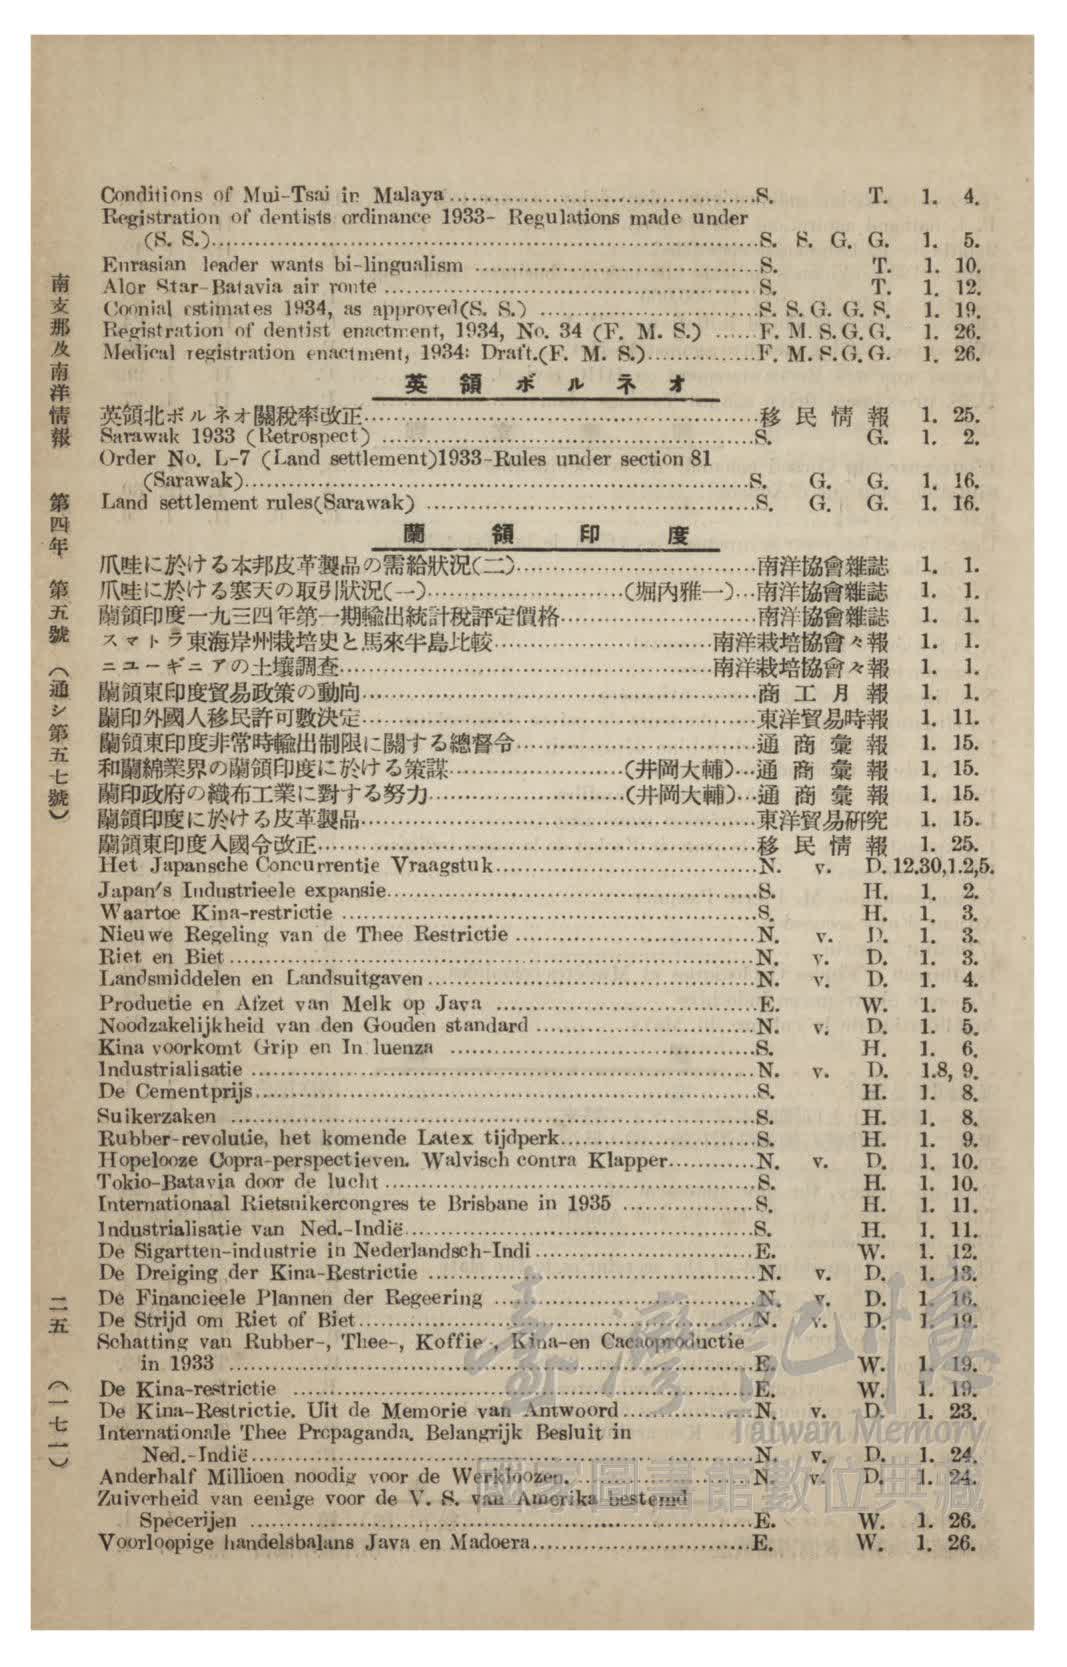 Conditions of Mui-Tsai in Malaya........................................S. T. 1. 4.
Registration of dentists ordinance 1933- Regulations made under
(S. S.)........................................S. S. G. G. 1. 5.
Eurasian leader wants bi-lingualism ........................................S. T. 1. 10.
Alor Star-Batavia air route ........................................S. T. 1. 12.
Coonial estimates 1934, as approved(S. S.) ........................................S. S. G. G. S. 1. 19.
Registration of dentist enactment, 1934, No. 34 (F. M. S.) ......F. M. S. G. G. 1. 26.
Medical registration enactment, 1934: Draft.(F. M. S.)...............F. M. S. G. G. 1. 26.
英領ボルネオ
英領北ボルネオ關稅率改正........................................移民情報 1. 25.
Sarawak 1933 (Retrospect) ........................................S. G. 1. 2.
Order No. L-7 (Land settlement)1933-Rules under section 81
(Sarawak)........................................S. G. G. 1. 16.
Land settlement rules(Sarawak) ........................................S. G. G. 1. 16.
蘭領印度
爪哇に於ける本邦皮革製品の需給狀況(二)..............................南洋協會雜誌 1. 1.
爪哇に於ける寒天の取引狀況(一)..............................(堀內雅一)...南洋協會雜誌 1. 1.
蘭領印度一九三四年第一期輸出統計稅評定價格..............................南洋協會雜誌 1. 1.
スマトラ東海岸州栽培史と馬來半島比較..............................南洋栽培協會々報 1. 1.
ニユーギニアの土壤調査........................................南洋栽培協會々報 1. 1.
蘭領東印度貿易政策の動向........................................商工月報 1. 1.
蘭印外國人移民許可數決定........................................東洋貿易時報 1. 11.
蘭領東印度非常時輸出制限に關する總督令..............................通商彙報 1. 15.
和蘭綿業界の蘭領印度に於ける策謀........................(井岡大輔)...通商彙報 1. 15.
蘭印政府の織布工業に對する努力........................(井岡大輔)...通商彙報 1. 15.
蘭領印度に於ける皮革製品........................................東洋貿易硏究 1. 15.
蘭領東印度入國令改正........................................移民情報 1. 25.
Het Japansche Concurrentie Vraagstuk..............................N. v. D. 12.30,1.2,5.
Japan's Industrieele expansie........................................S. H. 1. 2.
Waartoe Kina-restrictie ........................................S. H. 1. 3.
Nieuwe Regeling van de Thee Restrictie ..............................N. v. D. 1. 3.
Riet en Biet........................................N. v. D. 1. 3.
Landsmiddelen en Landsuitgaven........................................N. v. D. 1. 4.
Productie en Afzet van Melk op Java ..............................E. W. 1. 5.
Noodzakelijkheid van den Gouden standard ..............................N. v. D. 1. 5.
Kina voorkomt Grip en In luenza ........................................S. H. 1. 6.
Industrialisatie ........................................N. v. D. 1.8, 9.
De Cementprijs........................................S. H. 1. 8.
Suikerzaken ........................................S. H. 1. 8.
Rubber-revolutie, het komende Latex tijdperk.........................S. H. 1. 9.
Hopelooze Copra-perspectieven. Walvisch contra Klapper............N. v. D. 1. 10.
Tokio-Batavia door de lucht ........................................S. H. 1. 10.
Internationaal Rietsuikercongres te Brisbane in 1935 ..................S. H. 1. 11.
Industrialisatie van Ned.-Indië........................................S. H. 1. 11.
De Sigartten-industrie in Nederlandsch-Indi..............................E. W. 1. 12.
De Dreiging der Kina-Restrictie ........................................N. v. D. 1. 13.
De Financieele Plannen der Regeering ..............................N. v. D. 1. 16.
De Strijd om Riet of Biet........................................N. v. D. 1. 19.
Schatting van Rubber-, Thee-, Koffie-, Kina-en Cacaoproductie
in 1933 ........................................E. W. 1. 19.
De Kina-restrictie ........................................E. W. 1. 19.
De Kina-Restrictie. Uit de Memorie van Antwoord..................N. v. D. 1. 23.
Internationale Thee Propaganda. Belangrijk Besluit in
Ned.-Indië........................................N. v. D. 1. 24.
Anderhalf Millioen noodig voor de Werkloozen.........................N. v. D. 1. 24.
Zuiverheid van eenige voor de V. S. van Amerika bestemd
Specerijen ........................................E. W. 1. 26.
Voorloopige handelsbalans Java en Madoera..............................E. W. 1. 26.
南支那及南洋情報 第四年 第五號 (通シ第五七號) 二五 (一七一)
臺灣記憶
Taiwan Memory
國家圖書館數位典藏